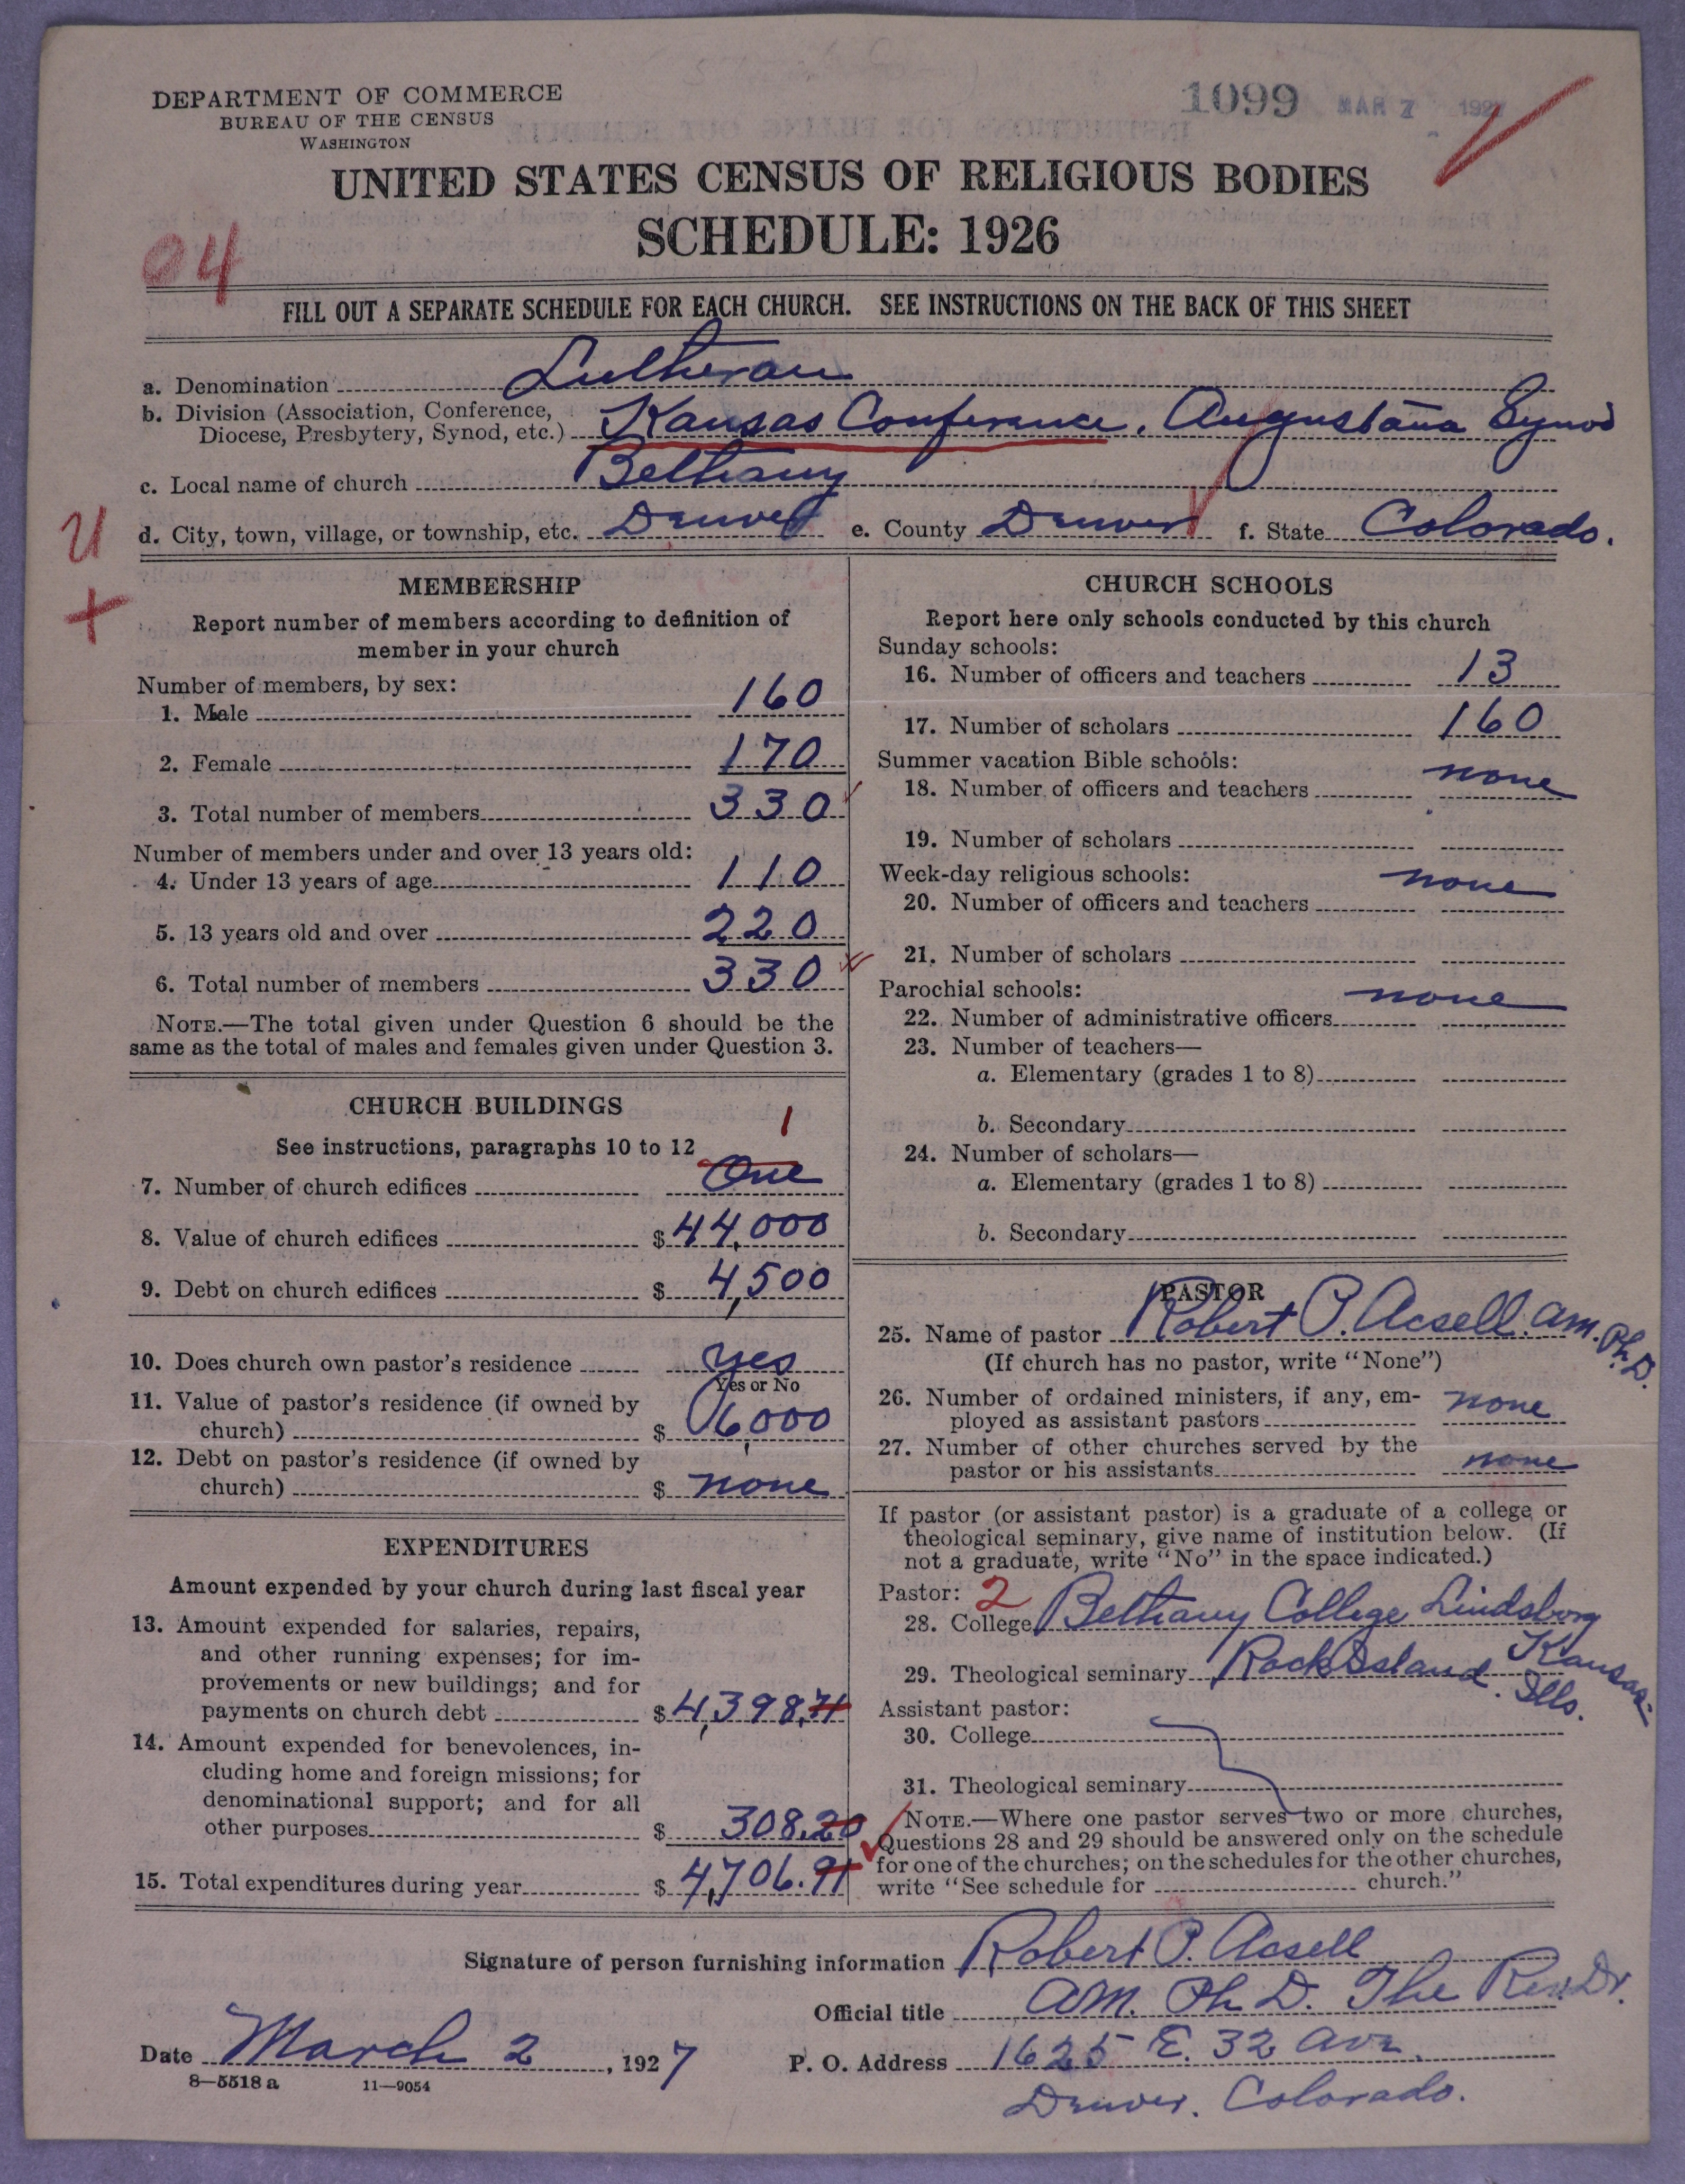 DEPARTMENT OF COMMERCE
BUREAU OF THE CENSUS
WASHINGTON
1099 MAR 7 192
UNITED STATES CENSUS OF RELIGIOUS BODIES
SCHEDULE: 1926
04
FILL OUT A SEPARATE SCHEDULE FOR EACH CHURCH. SEE INSTRUCTIONS ON THE BACK OF THIS SHEET
a. Denomination Lutheran
b. Division (Association, Conference,
Diocese, Presbytery, Synod, etc.) Kansas Conference. Augustana Synod
c. Local name of church Bethany
d. City, town, village, or township, etc. Denver e. County Denver f. State Colorado.
U
+
MEMBERSHIP
Report number of members according to definition of
member in your church
Number of members, by sex:
1. Male 160
2. Female 170
3. Total number of members 330
Number of members under and over 13 years old:
4. Under 13 years of age 110
5. 13 years old and over 220
6. Total number of members 330
NOTE.—The total given under Question 6 should be the
same as the total of males and females given under Question 3.
CHURCH BUILDINGS
See instructions, paragraphs 10 to 12
1
7. Number of church edifices One
8. Value of church edifices $ 44,000
9. Debt on church edifices $ 4,500
10. Does church own pastor's residence yes
Yes or No
11. Value of pastor's residence (if owned by
church) $ 6,000
12. Debt on pastor's residence (if owned by
church) $ none
EXPENDITURES
Amount expended by your church during last fiscal year
13. Amount expended for salaries, repairs,
and other running expenses; for im-
provements or new buildings; and for
payments on church debt $ 4,398.71
14. Amount expended for benevolences, in-
cluding home and foreign missions; for
denominational support; and for all
other purposes $ 308.20
15. Total expenditures during year $ 4,706.91
CHURCH SCHOOLS
Report here only schools conducted by this church
Sunday schools:
16. Number of officers and teachers 13
17. Number of scholars 160
Summer vacation Bible schools:
18. Number of officers and teachers none
19. Number of scholars
Week-day religious schools:
20. Number of officers and teachers none
21. Number of scholars
Parochial schools:
22. Number of administrative officers none
23. Number of teachers—
a. Elementary (grades 1 to 8)
b. Secondary
24. Number of scholars—
a. Elementary (grades 1 to 8)
b. Secondary
PASTOR
25. Name of pastor Robert P. Acsell. am. Ph.D.
(If church has no pastor, write "None")
26. Number of ordained ministers, if any, em-
ployed as assistant pastors none
27. Number of other churches served by the
pastor or his assistants none
If pastor (or assistant pastor) is a graduate of a college or
theological seminary, give name of institution below. (If
not a graduate, write "No" in the space indicated.)
Pastor: 2
28. College Bethany College Lindsborg
Kansas.
29. Theological seminary Rock Island. Ills.
Assistant pastor:
30. College
31. Theological seminary
NOTE.—Where one pastor serves two or more churches,
Questions 28 and 29 should be answered only on the schedule
for one of the churches; on the schedules for the other churches,
write "See schedule for church."
Signature of person furnishing information Robert P. Acsell
Official title am. Ph D. The Rev Dr.
Date March 2, 1927 P. O. Address 1625 E. 32 ave.
Denver. Colorado.
8—5518 a 11—9054